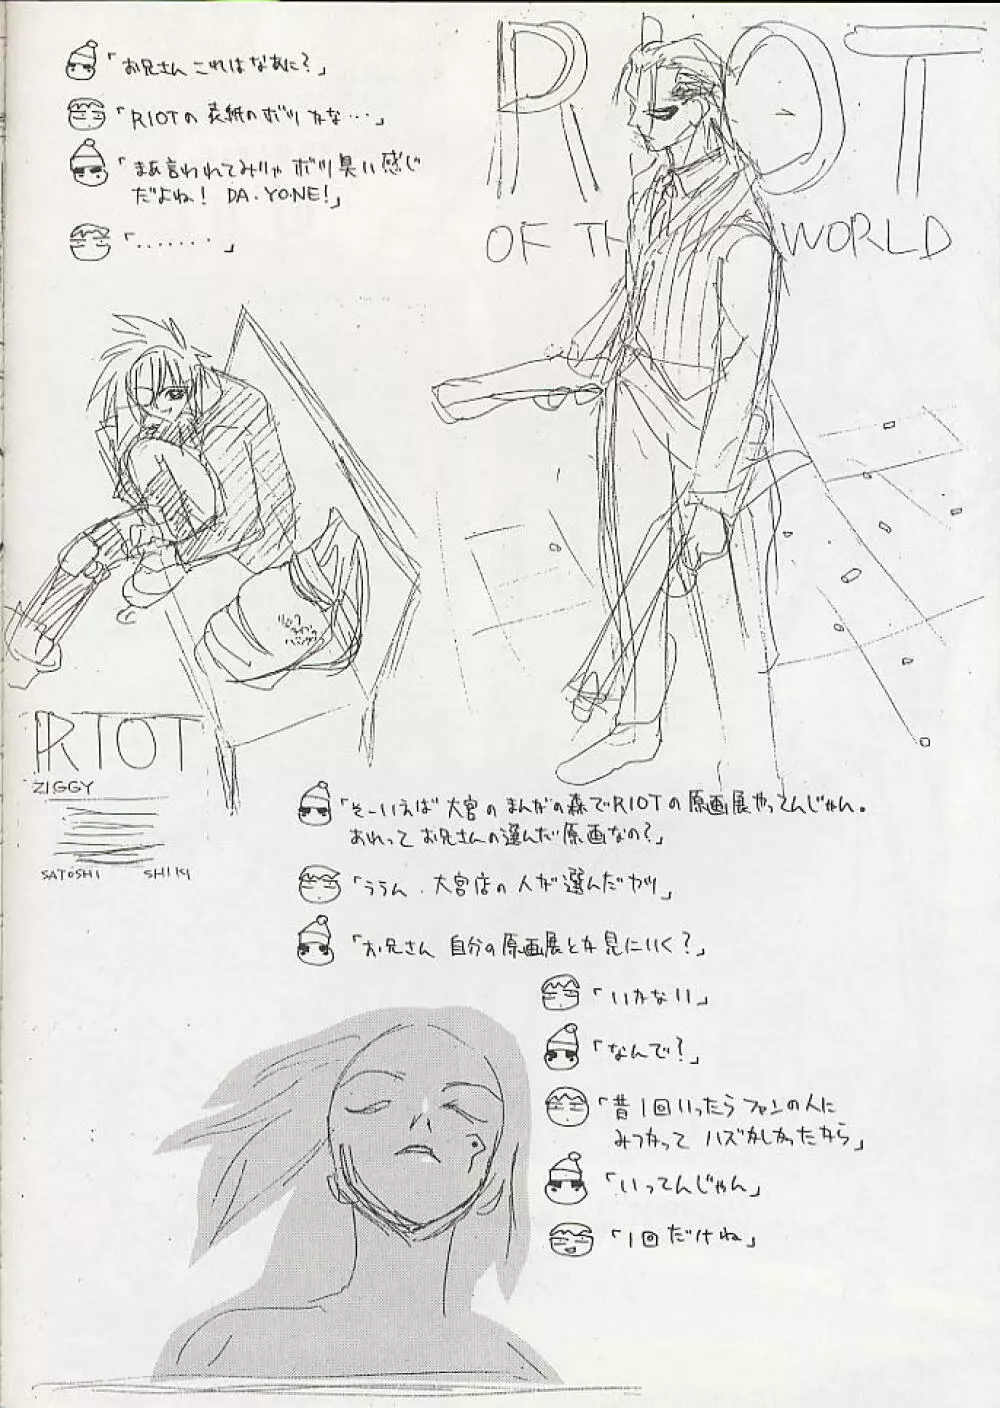 「お兄さん これは なあに?」
「RIOTの 表紙の ボツ かな・・・」
「まあ言われてみりゃ ボツ 臭い 感じ
だよね! DA.YO.NE!」
「・・・・・・・」
RIOT
OF THE WORLD
RIOT
ZIGGY
SATOSHI SHIKI
「そーいえば 大宮の まんがの森で RIOTの 原画展 やってんじゃん。
あれって お兄さんの選んだ 原画なの?」
「ううん. 大宮店の 人が 選んだヤツ」
「お兄さん 自分の原画展とか 見にいく?」
「いかない」
「なんで?」
「昔 1回いったら ファンの人に
みつかって ハズかしかったから」
「いってんじゃん」
「1回 だけね」